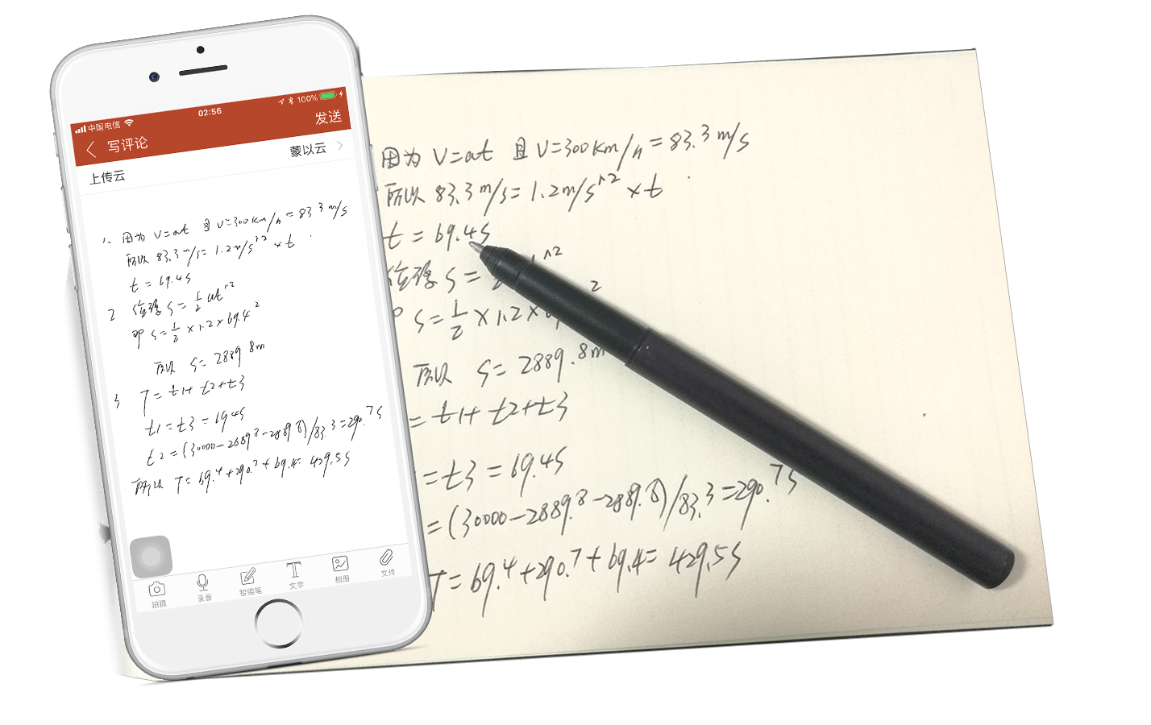 中国电信 02:56 100%
写评论 发送
上传云 蒙以云
1. 因为 V=at 且 V=300km/h=83.3m/s
所以 83.3m/s=1.2m/s^2×t
t=69.4s
2 位移 S=1/2at^2
即 S=1/2×1.2×69.4²
所以 S=2889.8m
3 T=t1+t2+t3
t1=t3=69.4s
t2=(30000-2889.8-2889.8)/83.3=290.7s
所以 T=69.4+290.7+69.4=429.5s
拍摄 录音 智能笔 文字 相册 文件
因为 V=at 且 V=300km/h=83.3m/s
所以 83.3m/s=1.2m/s^2×t
t=69.4s
位移 S= ^2
即 S=1/2×1.2× 2
所以 S=2889.8m
=t1+t2+t3
=t3=69.4s
=(30000-2889.8-2889.8)/83.3=290.7s
T=69.4+290.7+69.4=429.5s